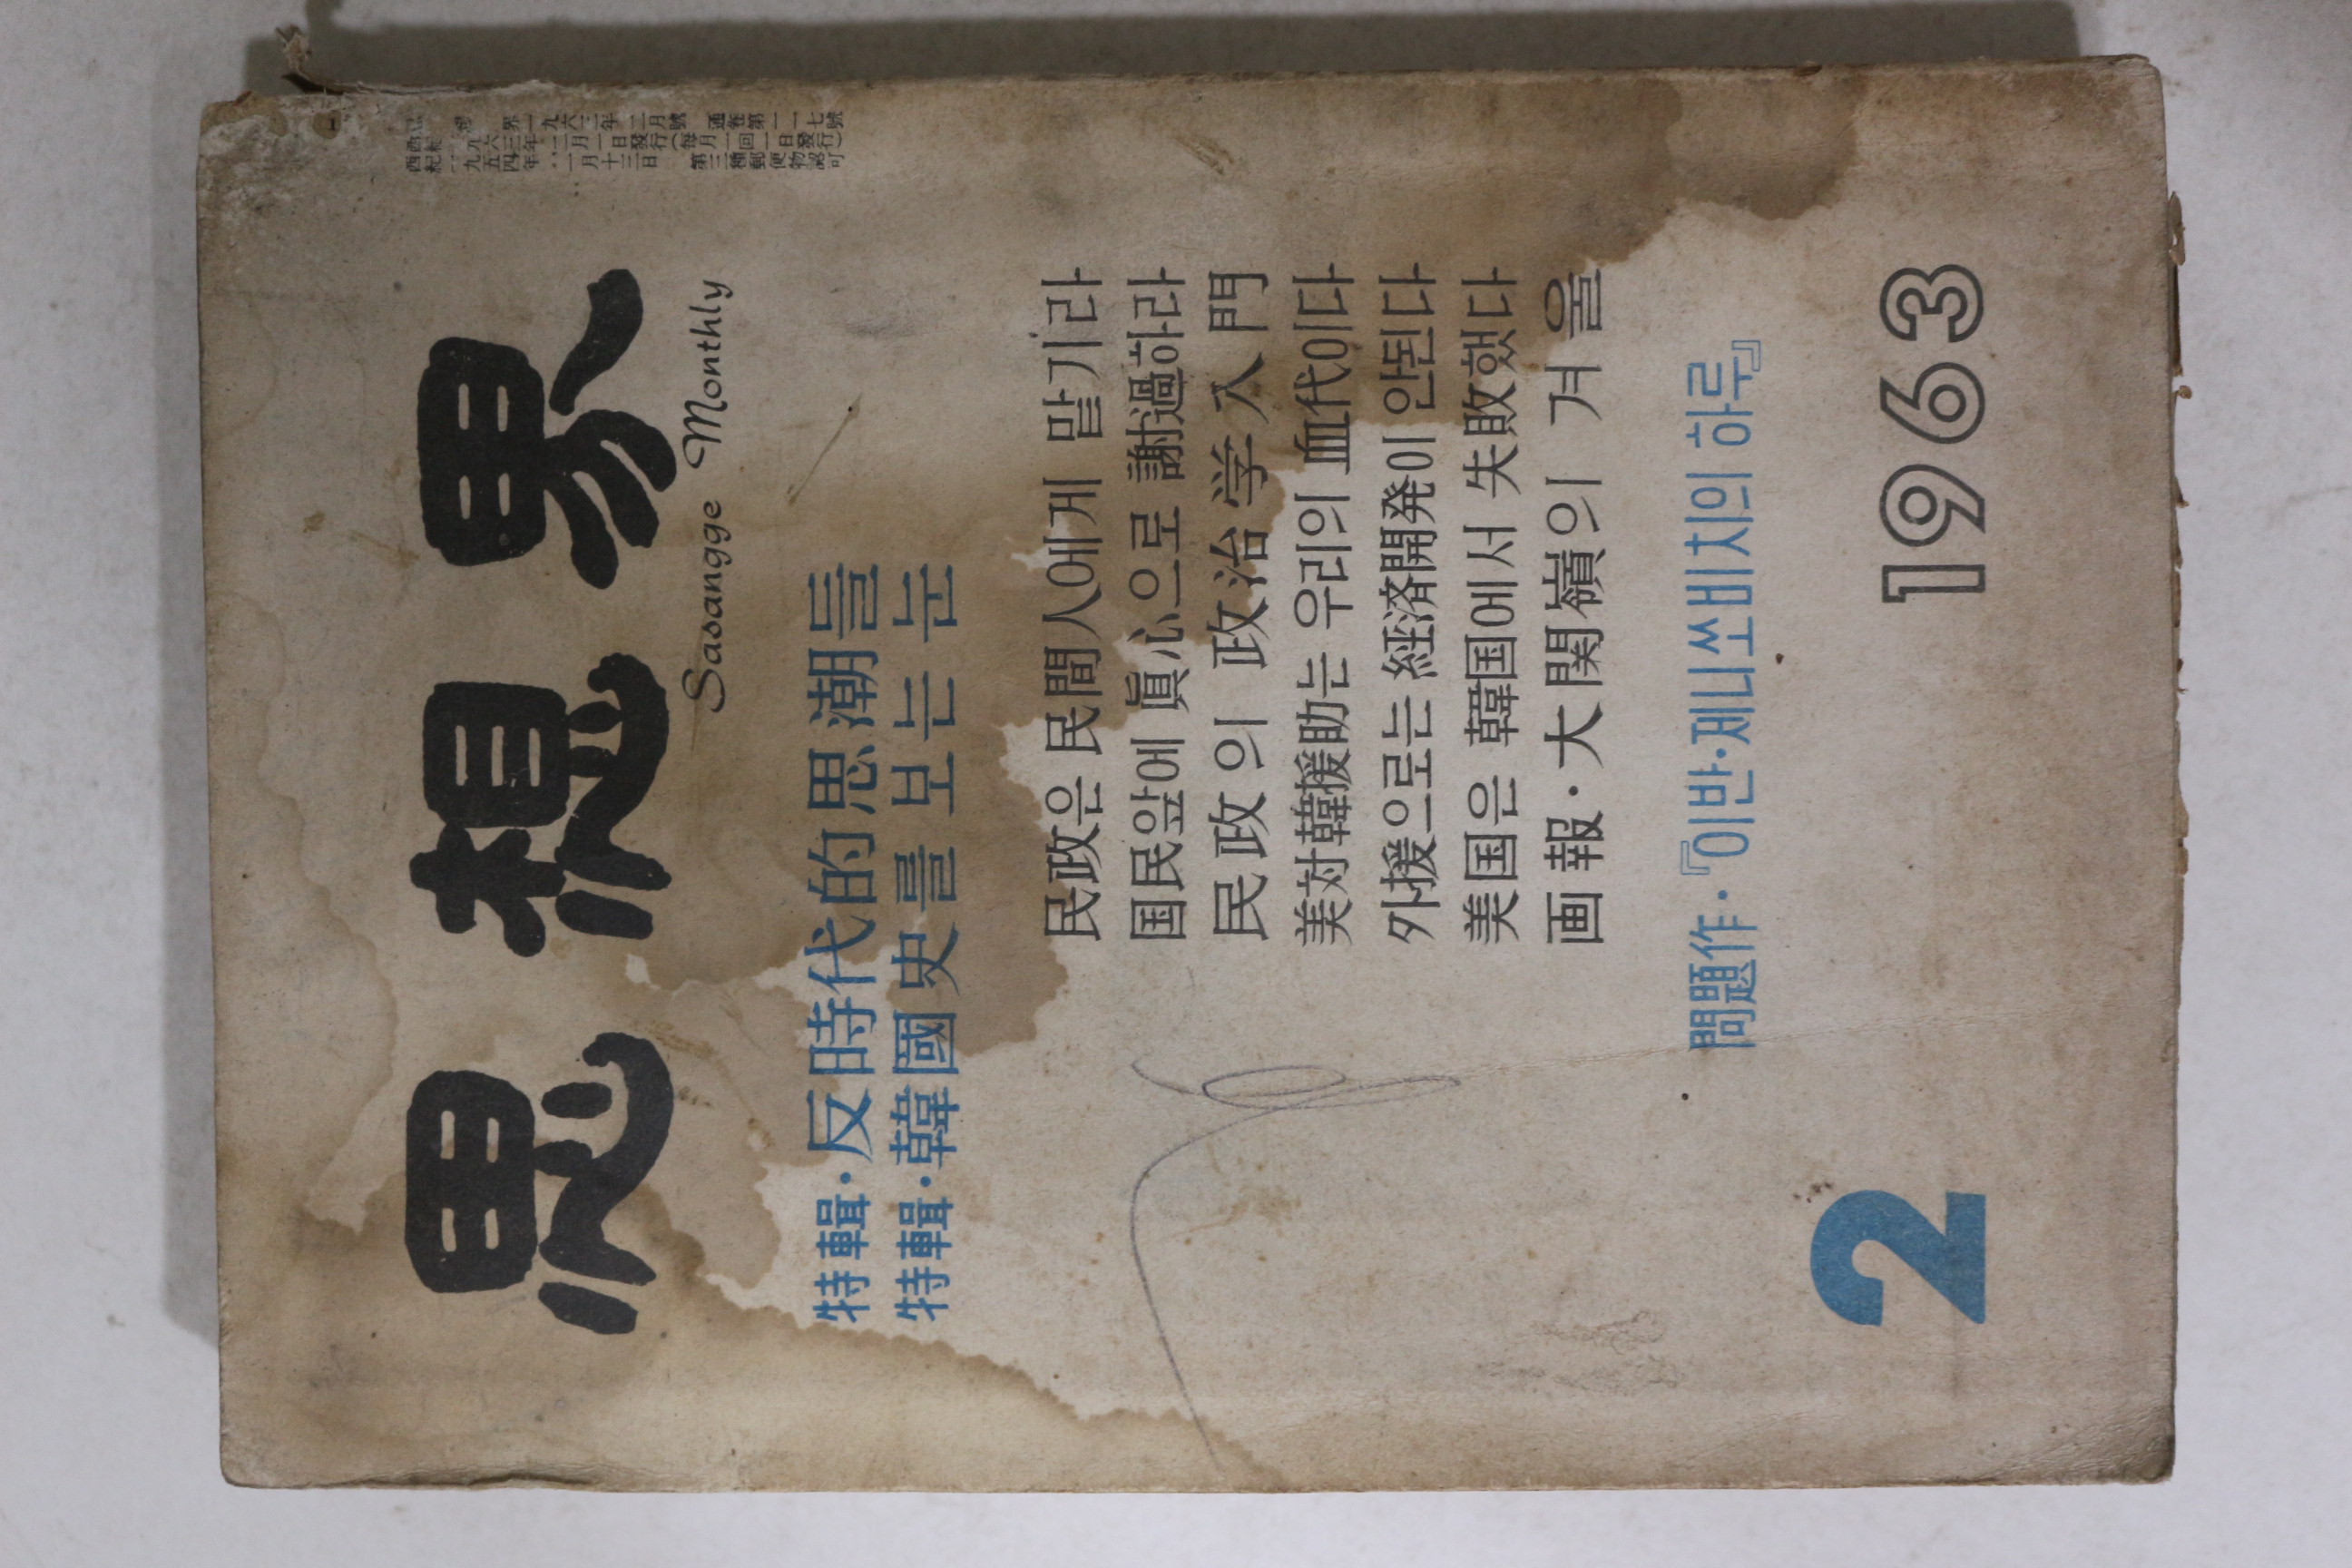 思想界
Sasangge Monthly
特輯·反時代的思潮들
特輯·韓國史를 보는 눈
民政은 民間人에게 맡기라
国民앞에 眞心으로 謝過하라
民政의 政治学入門
美対韓援助는 우리의 血代이다
外援으로는 経済開発이 안된다
美国은 韓国에서 失敗했다
画報·大関嶺의 겨울
問題作·『이반·제니쏘비치의 하루』
2
1963